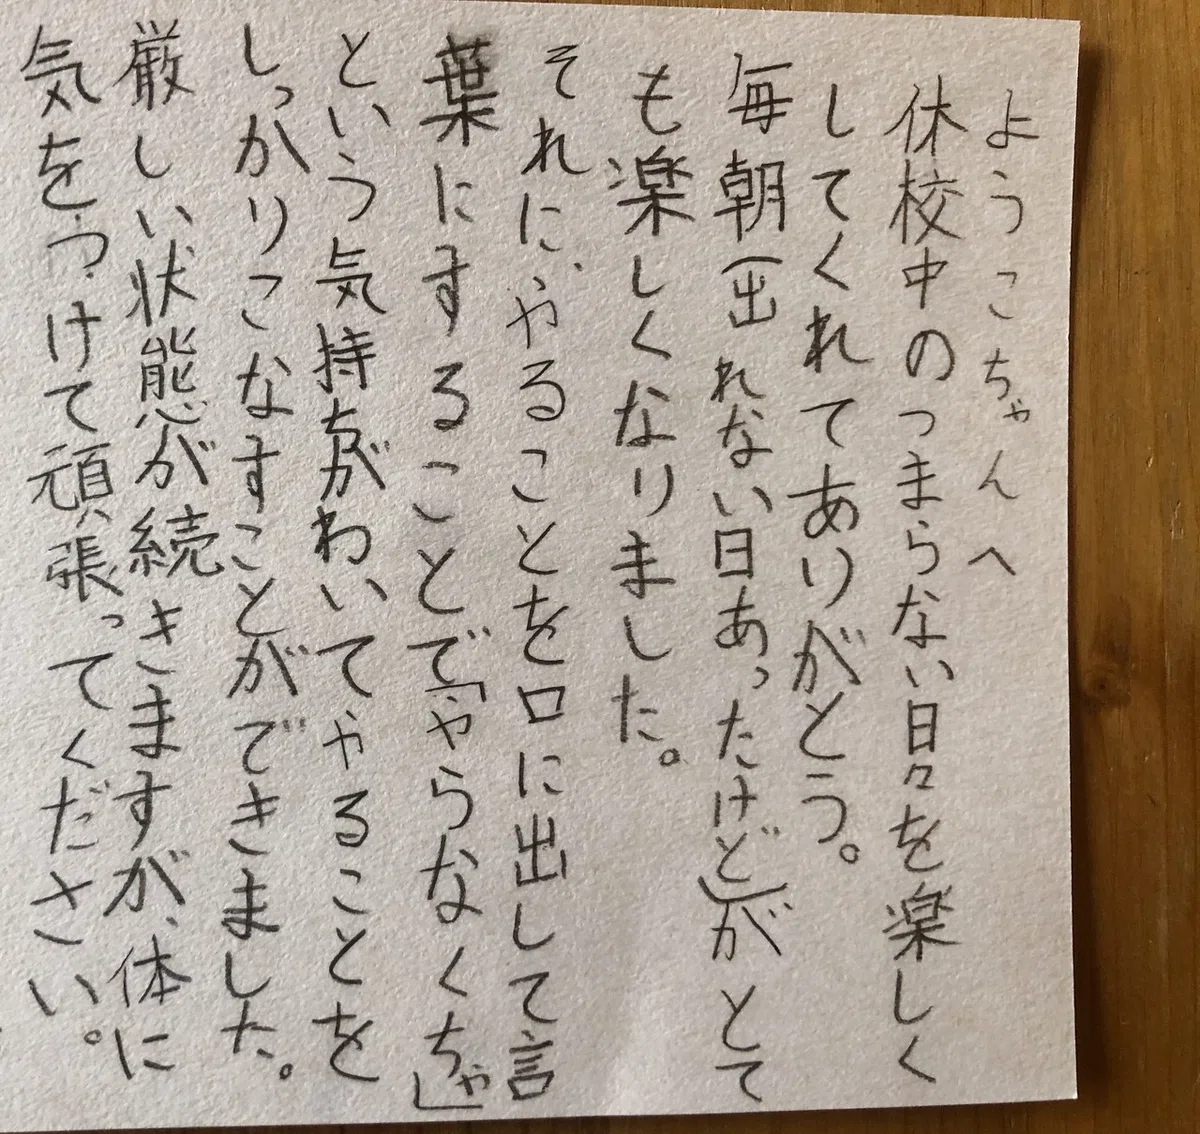 ようこちゃんへ
休校中のつまらない日々を楽しく
してくれてありがとう。
毎朝(出れない日あったけど)がとて
も楽しくなりました。
それに、やることを口に出して言
葉にすることで「やらなくちゃ」
という気持ちがわいてやることを
しっかりこなすことができました。
厳しい状態が続きますが、体に
気をつけて頑張ってください。